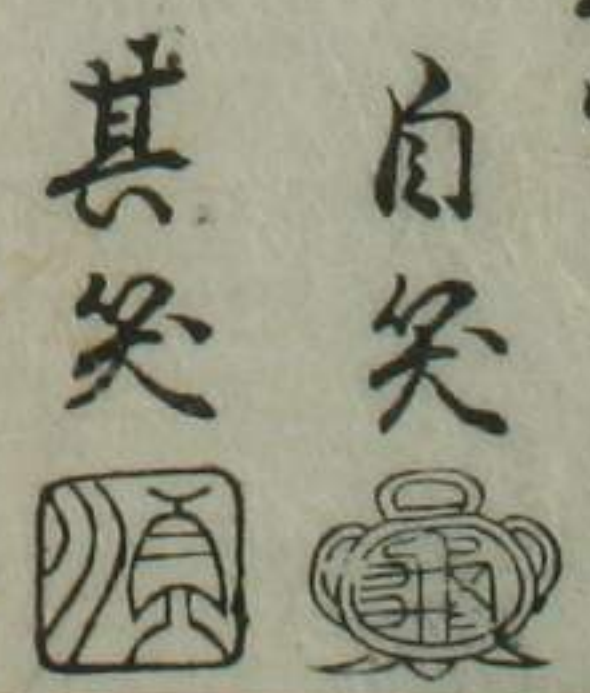 自笑
其笑